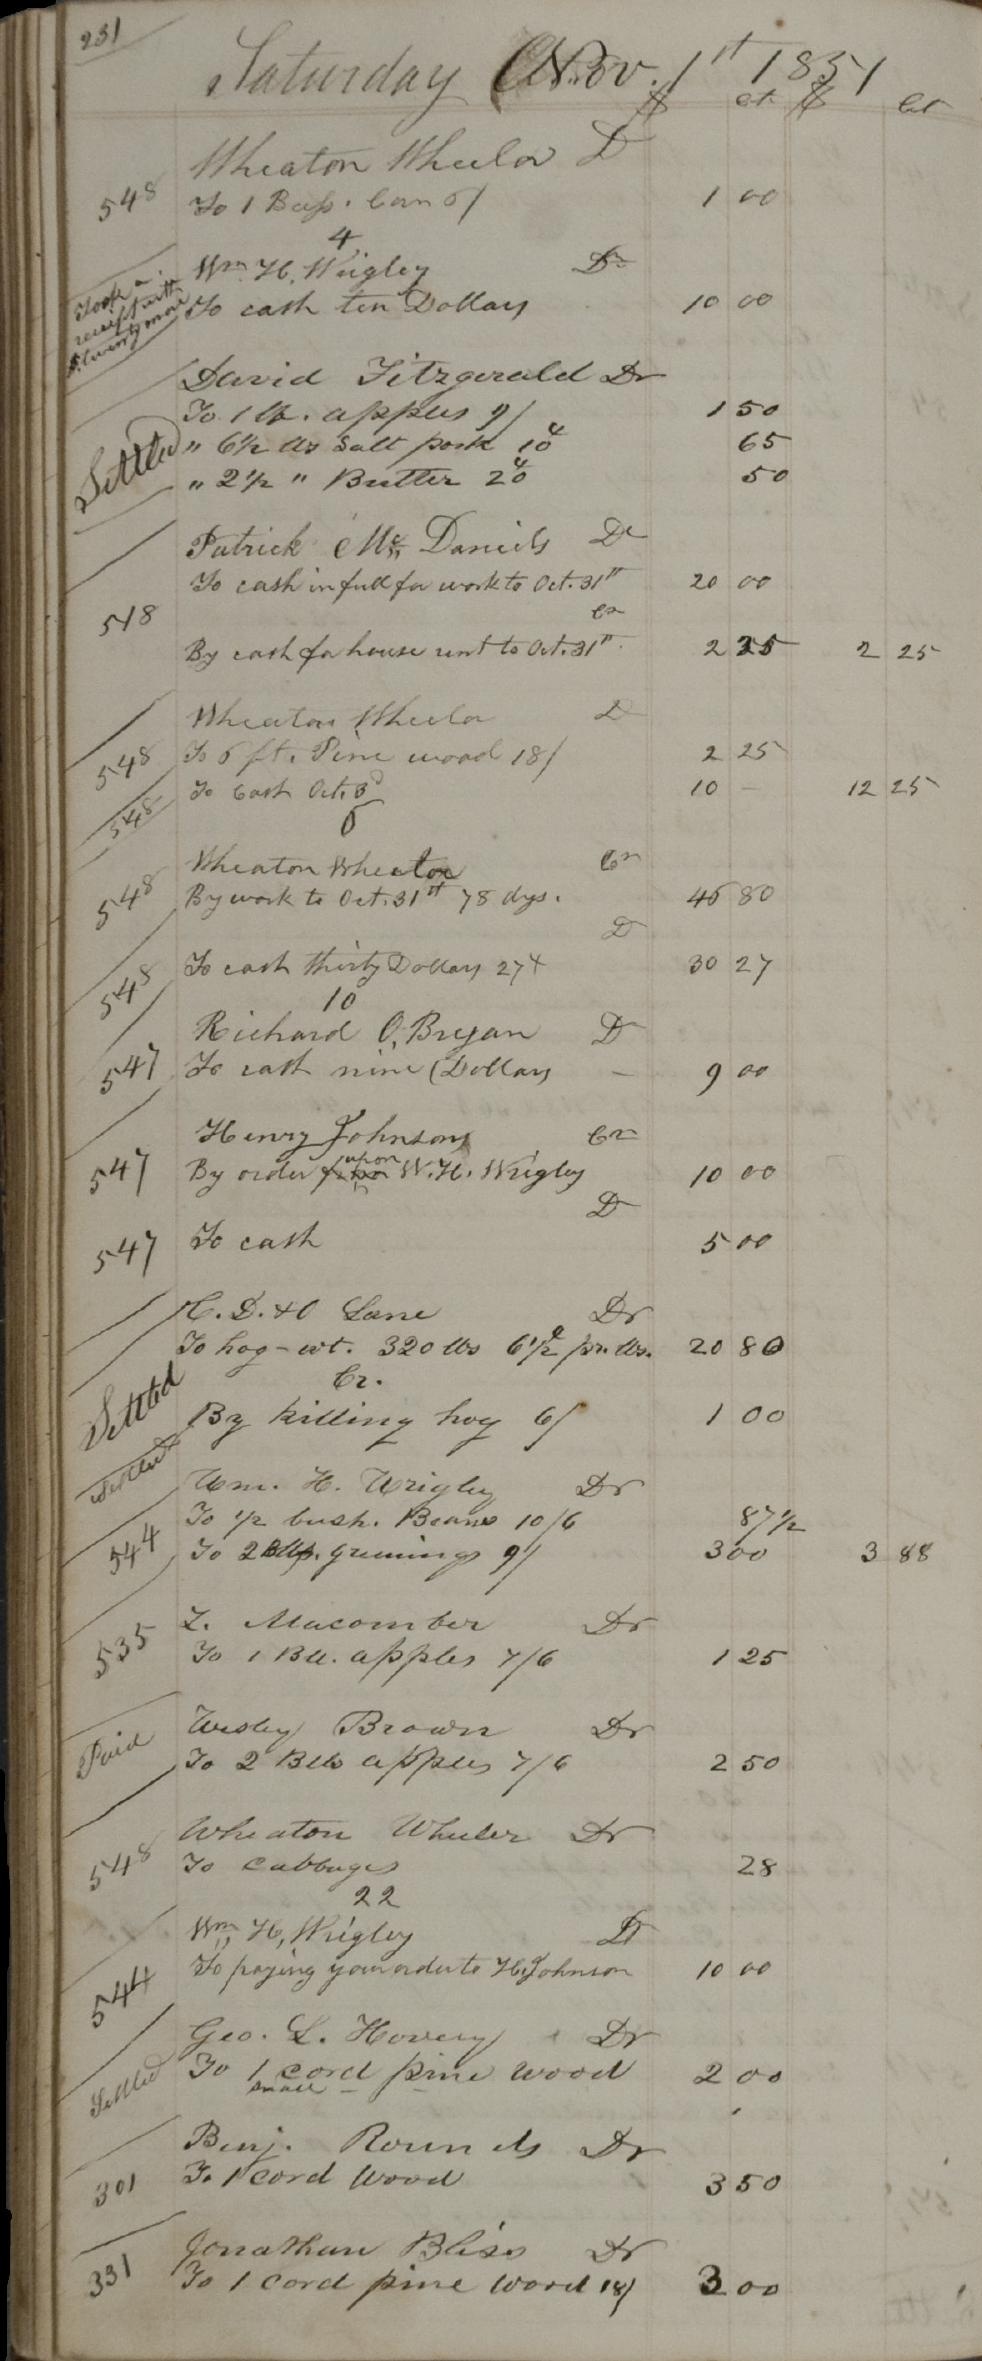 231
Saturday Nov. 1st 1851
$ ct $ ct
Wheaton Wheeler D
548 To 1 Bush. Corn 6/ 1 00
4
Wm. H. Wrigley Dr
Took a receipt with twenty more
To cash ten Dollars 10 00
David Fitzgerald Dr
To 1 bl. apples 9/ 1 50
Settled " 6½ lbs Salt pork 10 65
" 2½ " Butter 20 50
Patrick Mc Daniels Dr
To cash in full for work to Oct. 31st 20 00
518 Cr
By cash for house rent to Oct. 31st 2 25 2 25
Wheaton Wheeler D
548 To 6 ft. Pine wood 18/ 2 25
548 To Cash Oct. 3d 10 — 12 25
6
Wheaton Wheaton Cr
548 By work to Oct. 31st 78 dys. 46 80
D
548 To cash thirty Dollars 27 30 27
10
Richard O, Bryan D
547 To cash nine Dollars — 9 00
Henry Johnson Cr
547 By order upon W. H. Wrigley 10 00
D
547 To cash 5 00
C. D. & O Lane Dr
To hog - wt. 320 lbs 6½ pr. lbs. 20 80
Cr.
Settled By killing hog 6/ 1 00
Settled Wm. H. Wrigley Dr
To ½ bush. Beans 10/6 87½
544 To 2 Bbls. greenings 9/ 3 00 3 88
Z. Macomber Dr
535 To 1 Bll. apples 7/6 1 25
Wesley Brown Dr
Paid To 2 Blls apples 7/6 2 50
Wheaton Wheeler Dr
548 To Cabbages 28
22
Wm, H, Wrigley D
544 To paying your order to H. Johnson 10 00
Geo. L. Hovey Dr
Settled To 1 cord pine wood 2 00
small
Benj. Rounds Dr
301 To 1 cord Wood 3 50
Jonathan Bliss Dr
331 To 1 cord pine wood 18/ 3 00